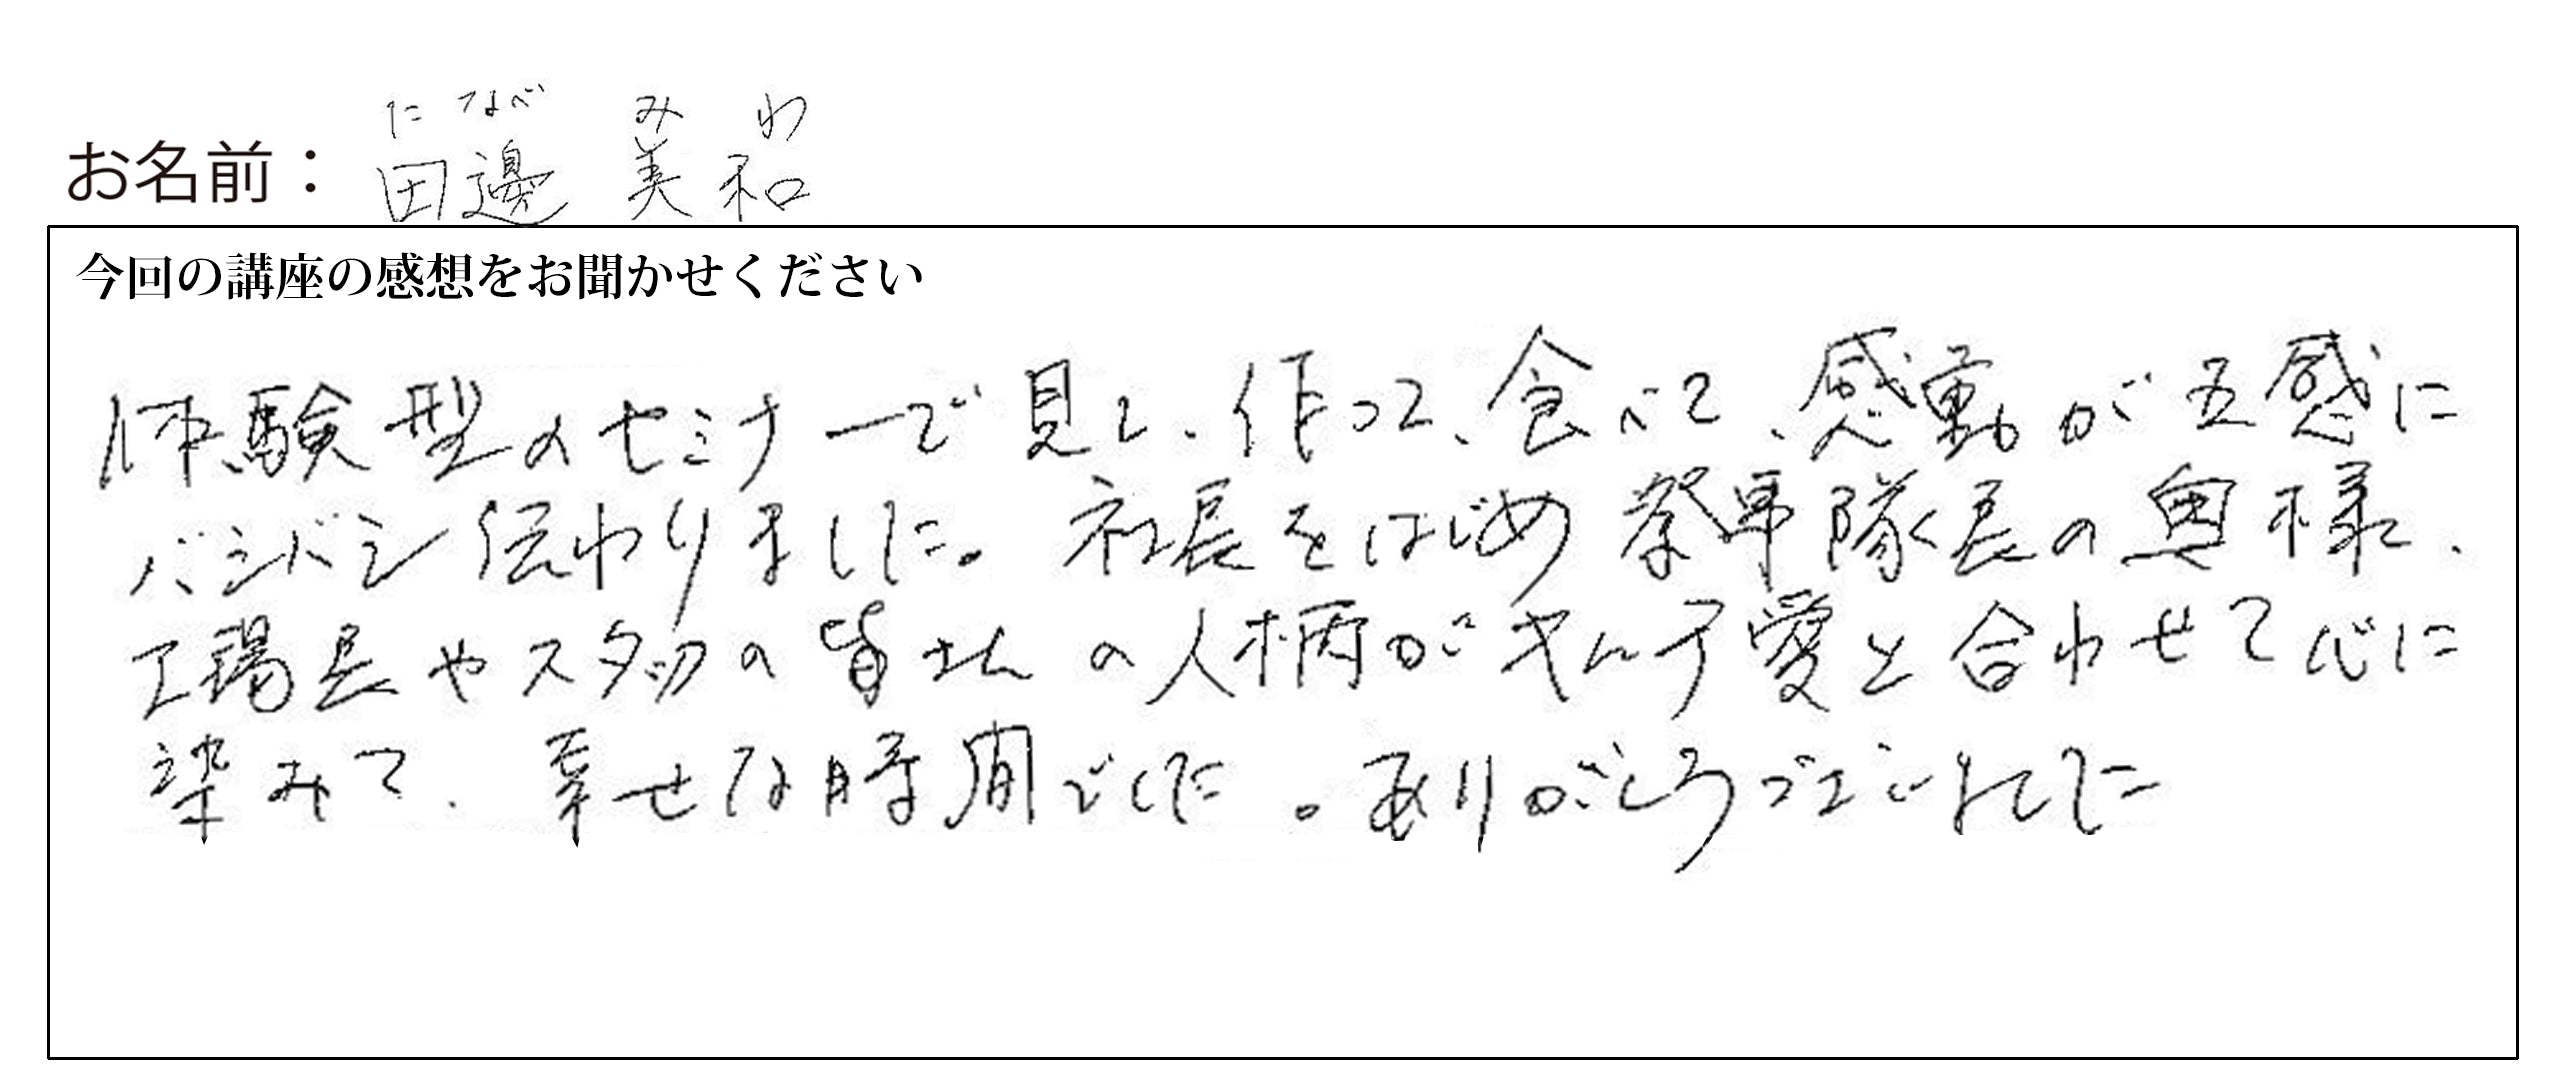 たなべ みわ
お名前： 田邊 美和
今回の講座の感想をお聞かせください
体験型のセミナーで見て、作って、食べて、感動が五感に
バシバシ伝わりました。社長をはじめ 隊長の奥様、
工場長やスタッフの皆さんの人柄がキムチ愛と合わせて心に
染みて、幸せな時間でした。ありがとうございました